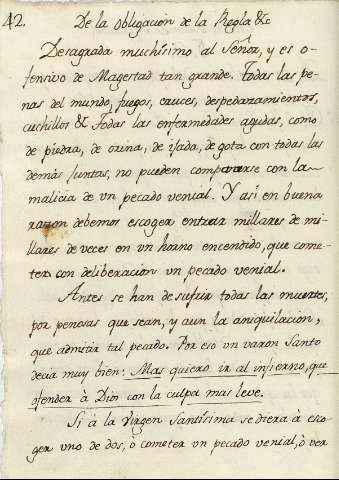 42. De la Obligacion de la Regla &c
Desagrada muchísimo al Señor, y es o-
fensivo de Magestad tan grande. Todas las pe-
nas del mundo, fuegos, cruces, despedazamientos,
cuchillos &c Todas las enfermedades agudas, como
de piedra, de orina, de ijada, de gota con todas las
demás juntas, no pueden compararse con la
malicia de un pecado venial. Y asi en buena
razon debemos escoger entrar millares de mi-
llares de veces en un horno encendido, que come-
ter con deliberacion un pecado venial.
Antes se han de sufrir todas las muertes,
por penosas que sean, y aun la aniquilacion,
que admitir tal pecado. Por eso un varon Santo
decia muy bien: Mas quiero ir al infierno, que
ofender à Dios con la culpa mas leve.
Si à la Virgen Santísima se diera à esco-
ger uno de dos, ò cometer un pecado venial, ò ver